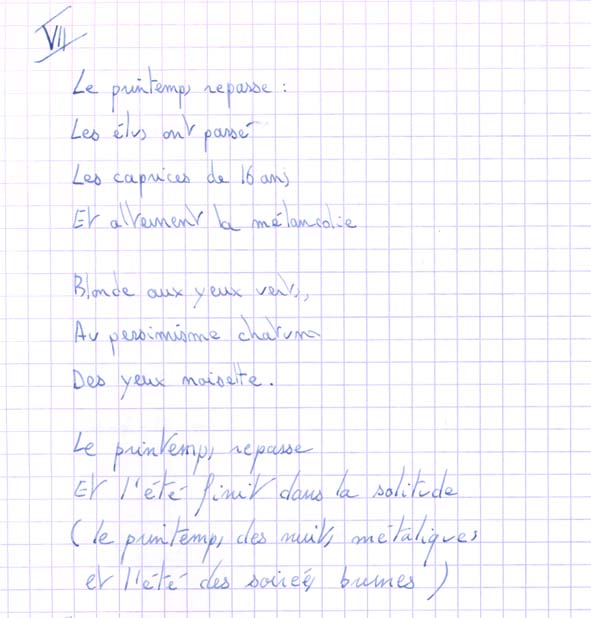 VII
Le printemps repasse :
Les élus ont passé
Les caprices de 16 ans
Et atteinent la mélancolie
Blonde aux yeux verts,
Au pessimisme chatun
Des yeux noisette.
Le printemps repasse
Et l'été finit dans la solitude
(le printemps des nuits métaliques
et l'été des soirées brunes)